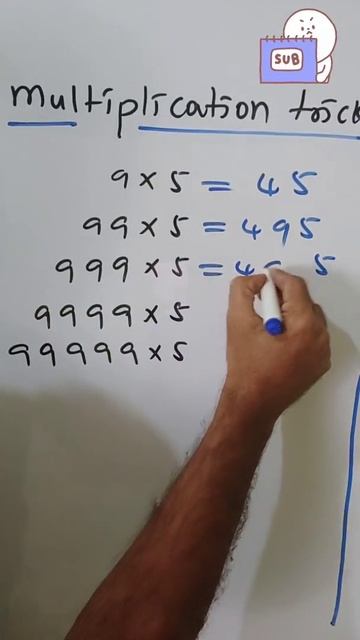 SUB
multiplication trick
9 × 5 = 45
99 × 5 = 495
999 × 5 = 4 5
9999 × 5
99999 × 5